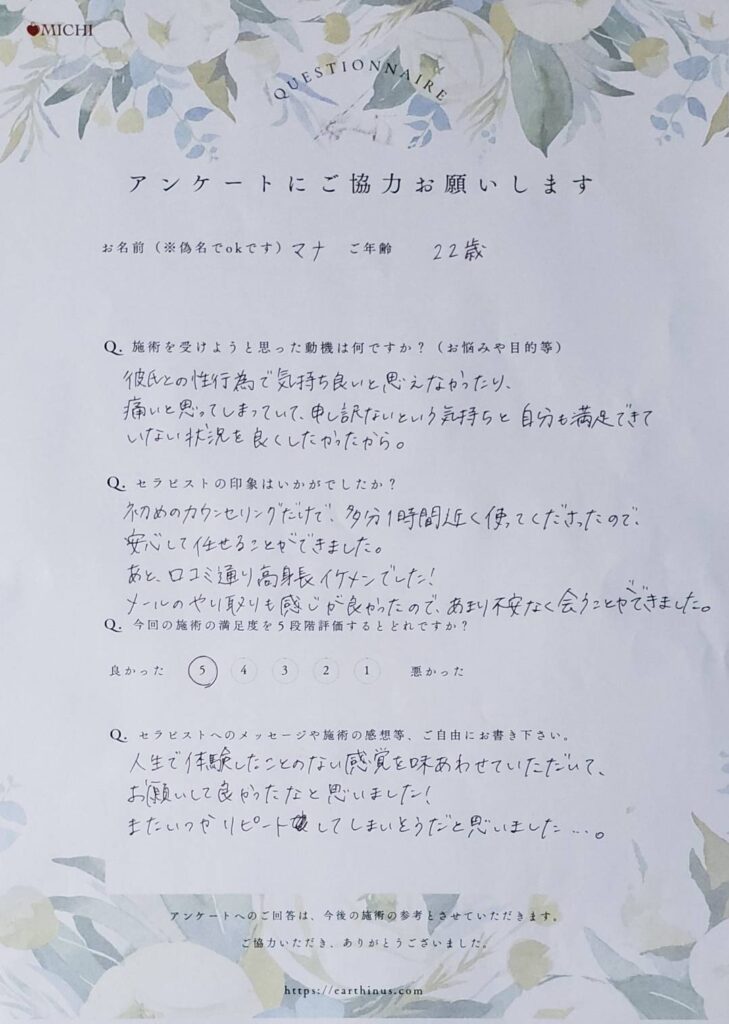 MICHI
QUESTIONNAIRE
アンケートにご協力お願いします
お名前（※偽名でokです）マナ ご年齢 22歳
Q. 施術を受けようと思った動機は何ですか？（お悩みや目的等）
彼氏との性行為で気持ち良いと思えなかったり、
痛いと思ってしまっていて、申し訳ないという気持ちと自分も満足できて
いない状況を良くしたかったから。
Q. セラピストの印象はいかがでしたか？
初めのカウンセリングだけで、多分1時間近く使ってくださったので、
安心して任せることができました。
あと、口コミ通り高身長イケメンでした！
メールのやり取りも感じが良かったので、あまり不安なく会うことができました。
Q. 今回の施術の満足度を5段階評価するとどれですか？
良かった 5 4 3 2 1 悪かった
Q. セラピストへのメッセージや施術の感想等、ご自由にお書き下さい。
人生で体験したことのない感覚を味あわせていただいて、
お願いして良かったなと思いました！
またいつかリピートしてしまいそうだと思いました…。
アンケートへのご回答は、今後の施術の参考とさせていただきます。
ご協力いただき、ありがとうございました。
https://earthinus.com